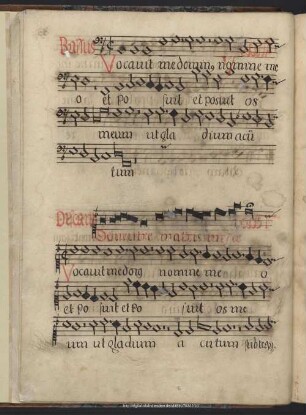 Vocavit me domin9 nomine me
o et po suit et posuit os
meum ut gla dium acu
tum
De ventre matris me
Vocavit me dom9 nomine me o
et po suit et po suit os me
um ut gladium a cutum